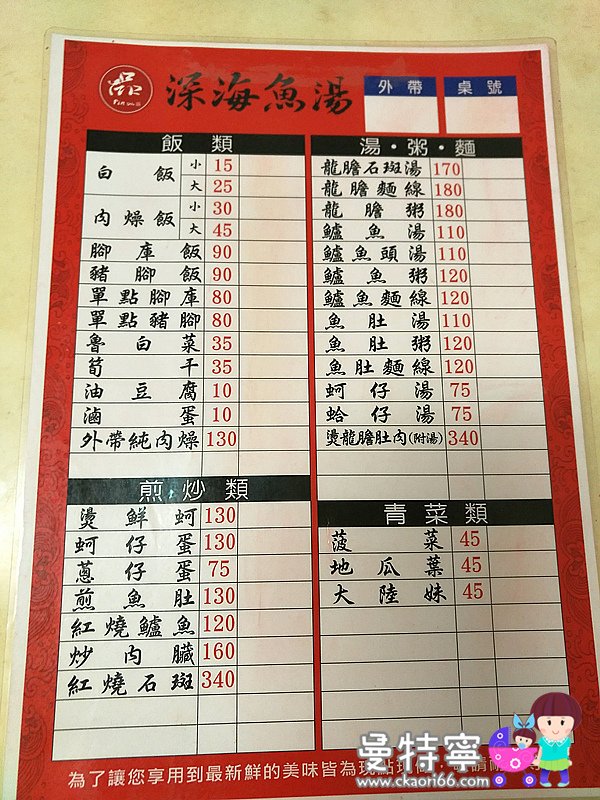 品
深海魚湯
外帶
桌號
飯類
白飯 小 15
大 25
肉燥飯 小 30
大 45
腳庫飯 90
豬腳飯 90
單點腳庫 80
單點豬腳 80
魯白菜 35
筍干 35
油豆腐 10
滷蛋 10
外帶純肉燥 130
湯・粥・麵
龍膽石斑湯 170
龍膽麵線 180
龍膽粥 180
鱸魚湯 110
鱸魚頭湯 110
鱸魚粥 120
鱸魚麵線 120
魚肚湯 110
魚肚粥 120
魚肚麵線 120
蚵仔湯 75
蛤仔湯 75
燙龍膽肚肉(附湯) 340
煎.炒類
燙鮮蚵 130
蚵仔蛋 130
蔥仔蛋 75
煎魚肚 130
紅燒鱸魚 120
炒內臟 160
紅燒石斑 340
青菜類
菠菜 45
地瓜葉 45
大陸妹 45
為了讓您享用到最新鮮的美味皆為現點現
曼特寧
www.ckaori66.com